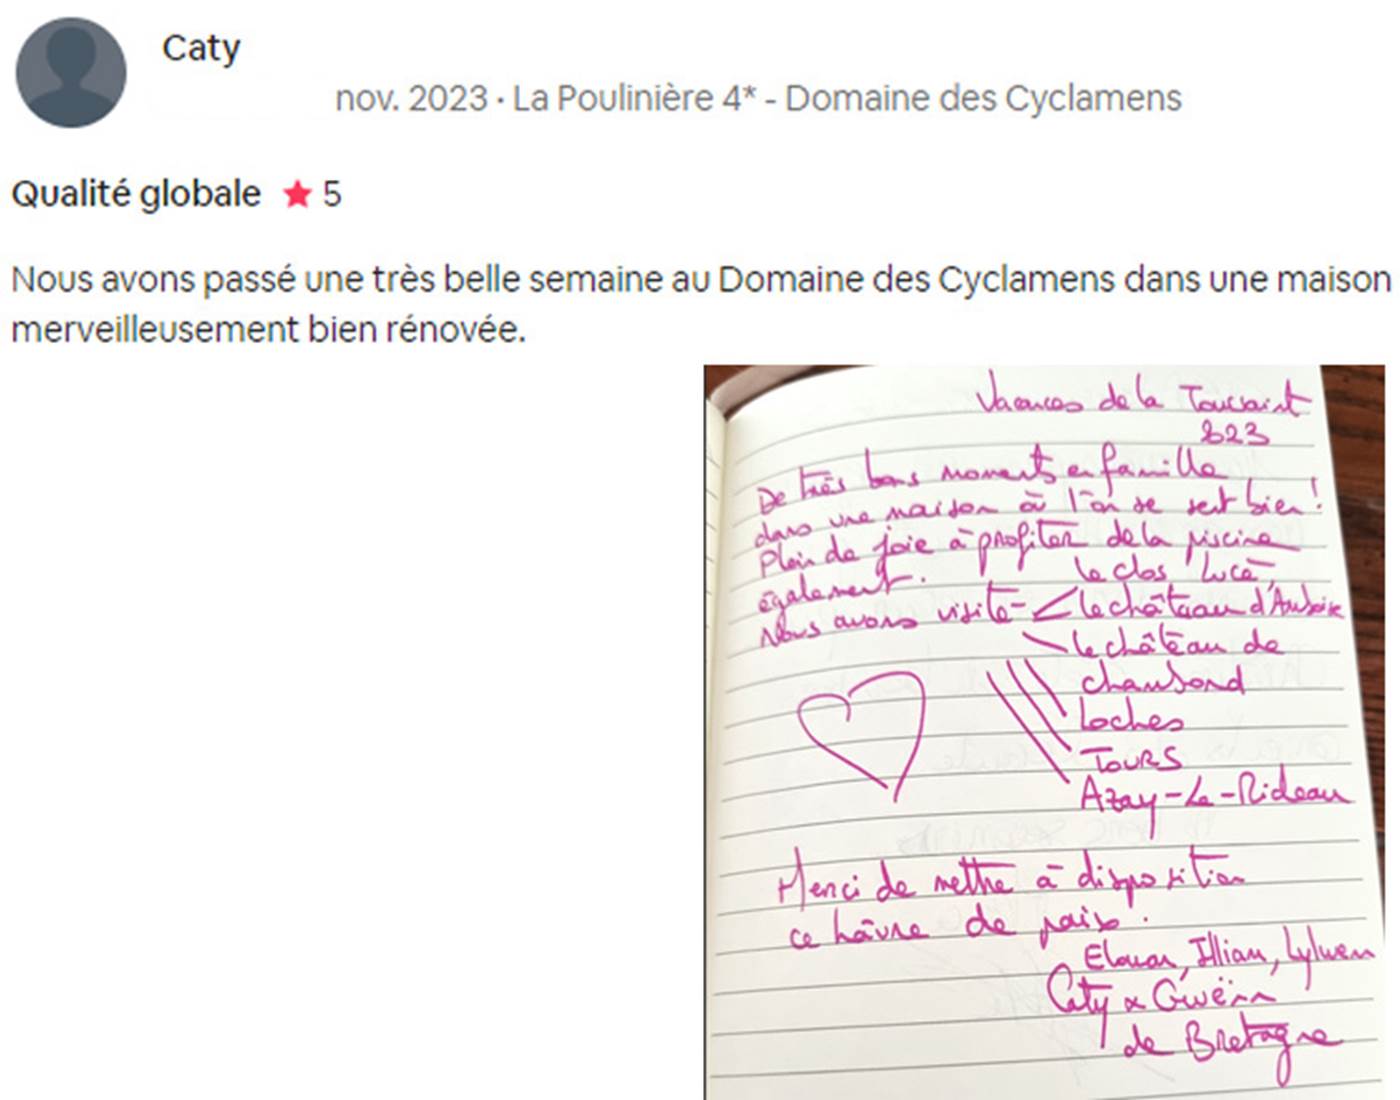 Caty
nov. 2023 · La Poulinière 4* - Domaine des Cyclamens
Qualité globale ★ 5
Nous avons passé une très belle semaine au Domaine des Cyclamens dans une maison
merveilleusement bien rénovée.
Vacances de la Toussaint
2023
De très bons moments en famille
dans une maison où l'on se sent bien !
Plein de joie à profiter de la piscine
également.
le clos Lucé,
Nous avons visité - le château d'Amboise
le château de
chambord
Loches
TOURS
Azay-Le-Rideau
Merci de mettre à disposition
ce hâvre de paix !
Elouan, Illian, Lylwen
Caty & Gwënn
de Bretagne